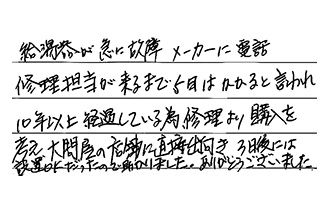 給湯器が急に故障 メーカーに電話
修理担当が来るまで5日はかかると言われ
10年以上経過している為修理より購入を
考え 大問屋の店舗に直接出向き 3日後には
設置OKだったので助かりました。ありがとうございました